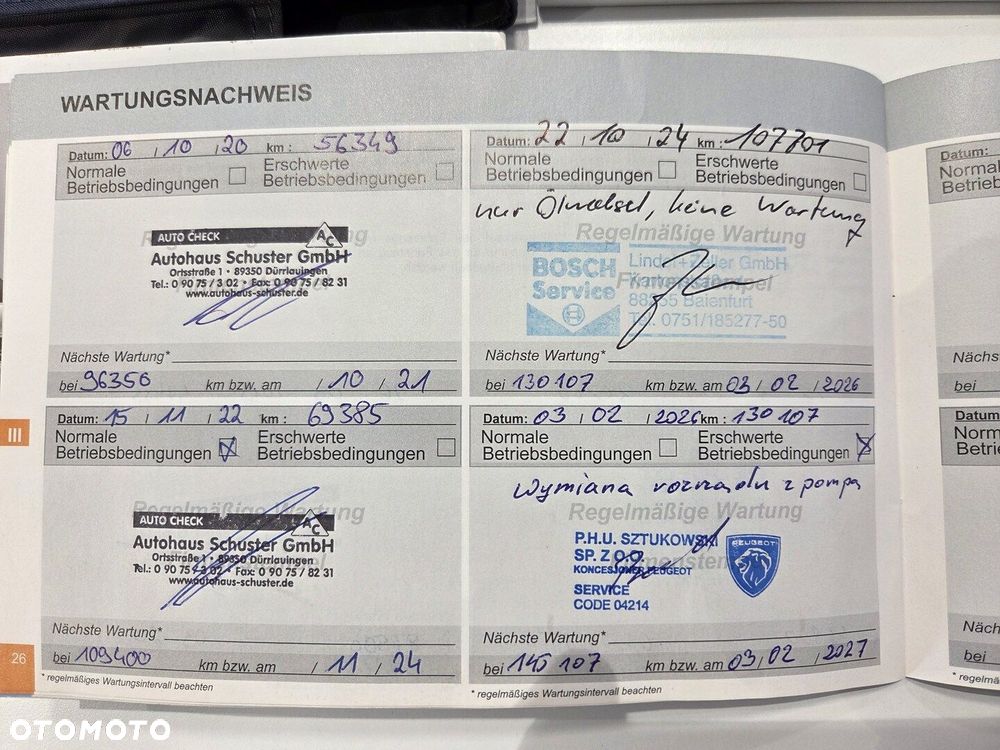 WARTUNGSNACHWEIS
Datum: 06 / 10 / 20 km : 56349
Normale
Betriebsbedingungen
Erschwerte
Betriebsbedingungen
Regelmäßige Wartung
AUTO CHECK
AC
Autohaus Schuster GmbH
Ortsstraße 1 • 89350 Dürrlauingen
Tel.: 0 90 75 / 3 02 • Fax: 0 90 75 / 82 31
www.autohaus-schuster.de
Nächste Wartung*
bei 96350 km bzw. am / 10 / 21
Datum: 15 / 11 / 22 km : 69385
Normale
Betriebsbedingungen
Erschwerte
Betriebsbedingungen
Regelmäßige Wartung
AUTO CHECK
AC
Autohaus Schuster GmbH
Ortsstraße 1 • 89350 Dürrlauingen
Tel.: 0 90 75 / 3 02 • Fax: 0 90 75 / 82 31
www.autohaus-schuster.de
Nächste Wartung*
bei 109400 km bzw. am / 11 / 24
* regelmäßiges Wartungsintervall beachten
Datum: 22 / 10 / 24 km : 107701
Normale
Betriebsbedingungen
Erschwerte
Betriebsbedingungen
nur Ölwechsel, keine Wartung
Regelmäßige Wartung
BOSCH
Service
Linder+Zeller GmbH
Firmenstempel
88255 Baienfurt
Tel. 0751/185277-50
Nächste Wartung*
bei 130107 km bzw. am 03 / 02 / 2026
Datum: 03 / 02 / 2026 km : 130107
Normale
Betriebsbedingungen
Erschwerte
Betriebsbedingungen
Wymiana rozrządu z pompą
Regelmäßige Wartung
P.H.U. SZTUKOWSKI
SP. Z O.O.
KONCESJONER PEUGEOT
SERVICE
CODE 04214
PEUGEOT
Nächste Wartung*
bei 145 107 km bzw. am 03 / 02 / 2027
* regelmäßiges Wartungsintervall beachten
Datum:
Normal
Betrieb
Nächs
bei
Datum
Norm
Betrie
Näch
bei
* rege
III
26
OTOMOTO